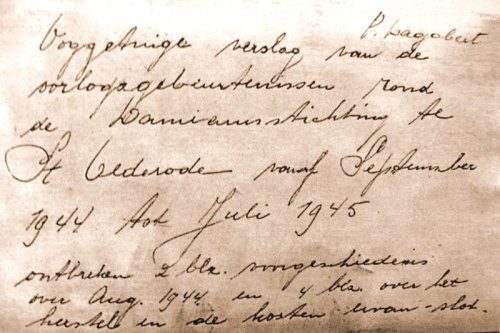 P. Dagobert
Ooggetuige verslag van de
oorlogsgebeurtenissen rond
de Damiaanstichting te
St Oedenrode vanaf September
1944 tot Juli 1945
ontbreken 2 blz. voorgeschiedenis
over Aug. 1944 en 4 blz. over het
herstel en de kosten ervan - slot.